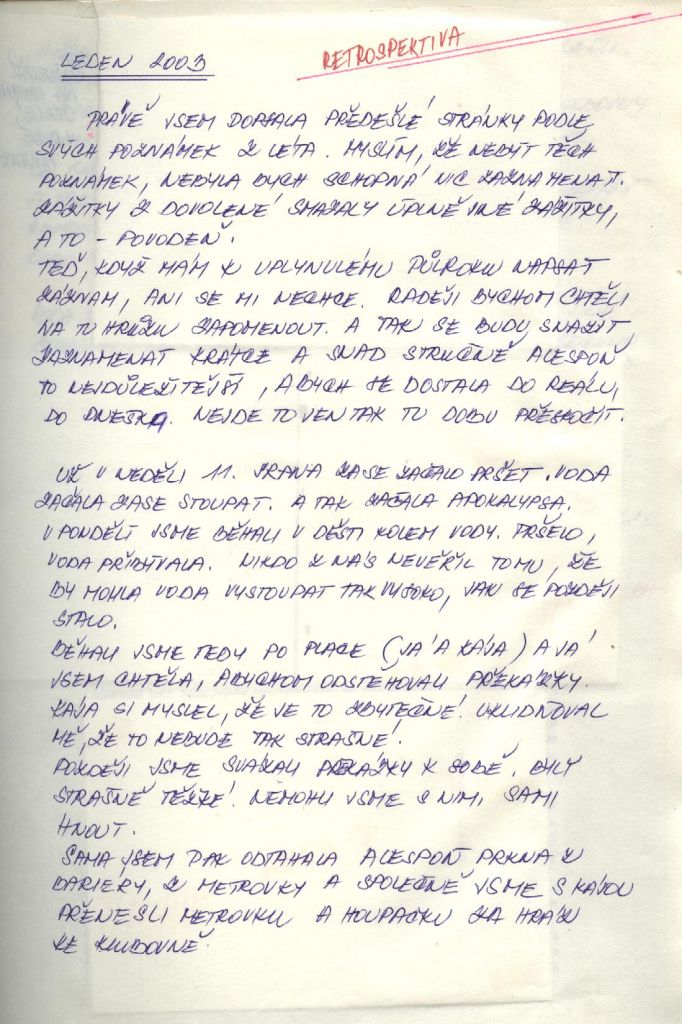 LEDEN 2003
RETROSPEKTIVA
PRÁVĚ JSEM DOPSALA PŘEDEŠLÉ STRÁNKY PODLE
SVÝCH POZNÁMEK Z LÉTA. MYSLÍM, ŽE NEBÝT TĚCH
POZNÁMEK, NEBYLA BYCH SCHOPNÁ NIC ZAZNAMENAT.
ZÁŽITKY Z DOVOLENÉ SMAZALY ÚPLNĚ JINÉ ZÁŽITKY,
A TO - POVODEŇ.
TEĎ, KDYŽ MÁM K UPLYNULÉMU PŮLROKU NAPSAT
ZÁZNAM, ANI SE MI NECHCE. RADĚJI BYCHOM CHTĚLI
NA TU HRŮZU ZAPOMENOUT. A TAK SE BUDU SNAŽIT
ZAZNAMENAT KRÁTCE A SNAD STRUČNĚ ALESPOŇ
TO NEJDŮLEŽITĚJŠÍ, ABYCH SE DOSTALA DO REÁLU,
DO DNEŠKA. NEJDE TO JEN TAK TU DOBU PŘESKOČIT.
UŽ V NEDĚLI 11. SRPNA ZASE ZAČALO PRŠET. VODA
ZAČALA ZASE STOUPAT. A TAK ZAČALA APOKALYPSA.
V PONDĚLÍ JSME BĚHALI V DEŠTI KOLEM VODY. PRŠELO,
VODA PŘIBÝVALA. NIKDO Z NÁS NEVĚŘIL TOMU, ŽE
BY MOHLA VODA VYSTOUPAT TAK VYSOKO, JAK SE POZDĚJI
STALO.
BĚHALI JSME TEDY PO PLACE (JÁ A KÁJA) A JÁ
JSEM CHTĚLA, ABYCHOM ODSTĚHOVALI PŘEKÁŽKY.
KÁJA SI MYSLEL, ŽE JE TO ZBYTEČNÉ. UKLIDŇOVAL
MĚ, ŽE TO NEBUDE TAK STRAŠNÉ.
POZDĚJI JSME SVÁZALI PŘEKÁŽKY K SOBĚ. BYLY
STRAŠNĚ TĚŽKÉ. NEMOHLI JSME S NIMI SAMI
HNOUT.
SAMA JSEM PAK ODTAHALA ALESPOŇ PRKNA Z
BARIÉRY, Z METROVKY A SPOLEČNĚ JSME S KÁJOU
PŘENESLI METROVKU A HOUPAČKU ZA HRÁZ
KE KLUBOVNĚ.